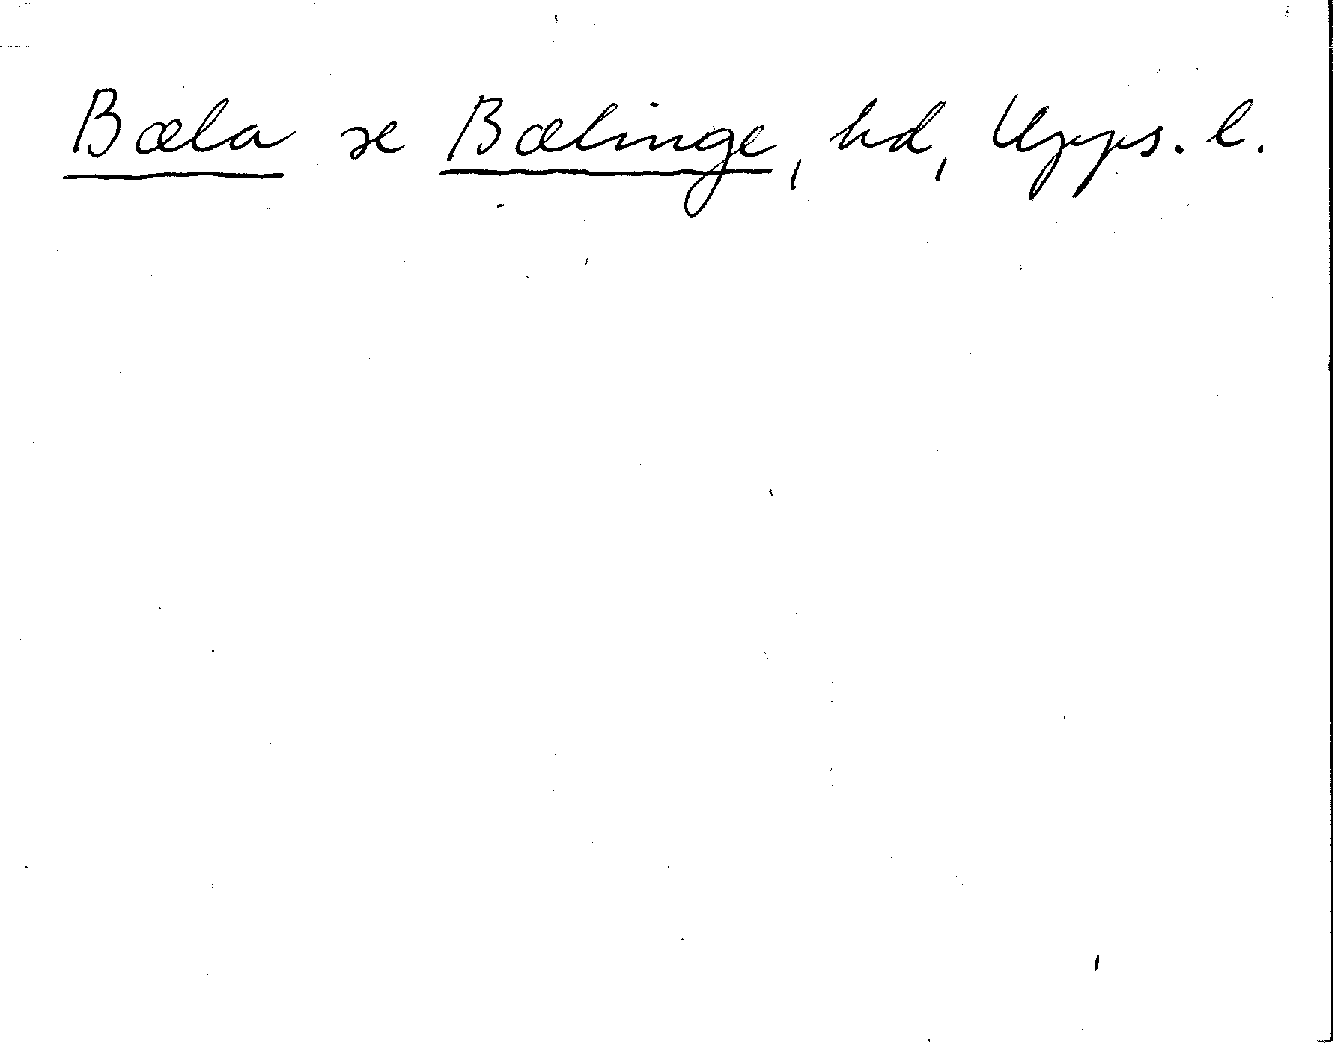 Bæla se Bælinge, hd, Upps. l.